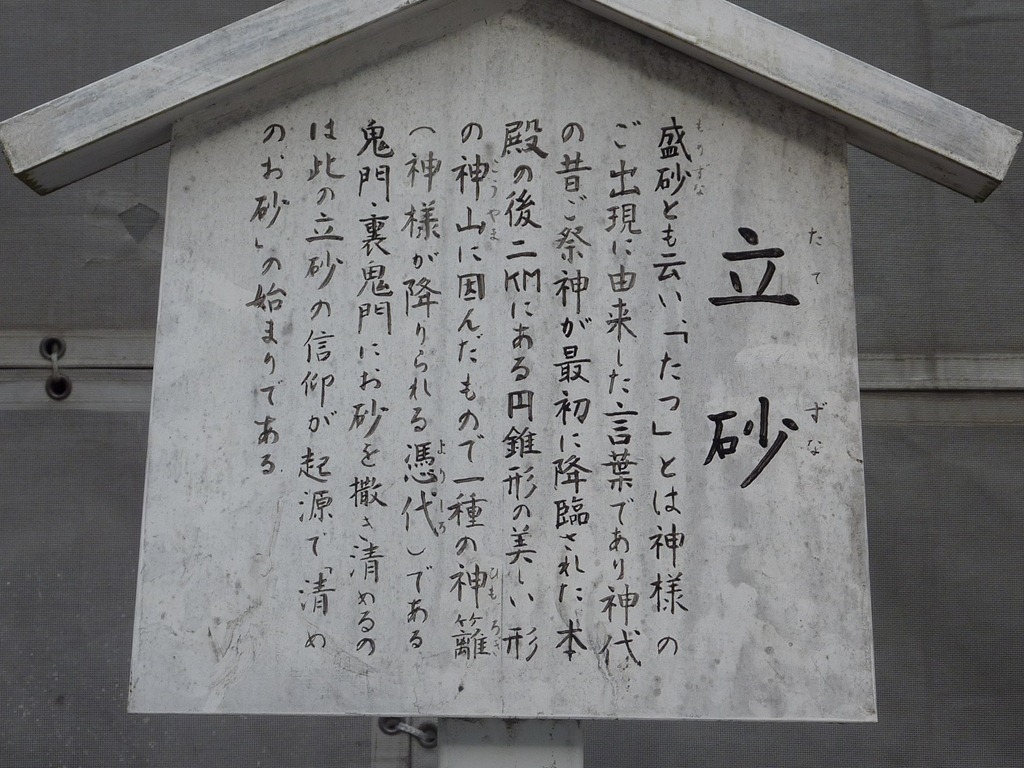 立砂
盛砂とも云い、「たつ」とは神様の
ご出現に由来した言葉であり神代
の昔ご祭神が最初に降臨された本
殿の後二KMにある円錐形の美しい形
の神山に因んだもので一種の神籬
(神様が降りられる憑代)である
鬼門、裏鬼門にお砂を撒き清めるの
は此の立砂の信仰が起源で「清め
のお砂」の始まりである
たてずな
もりずな
こうやま
ひもろぎ
よりしろ